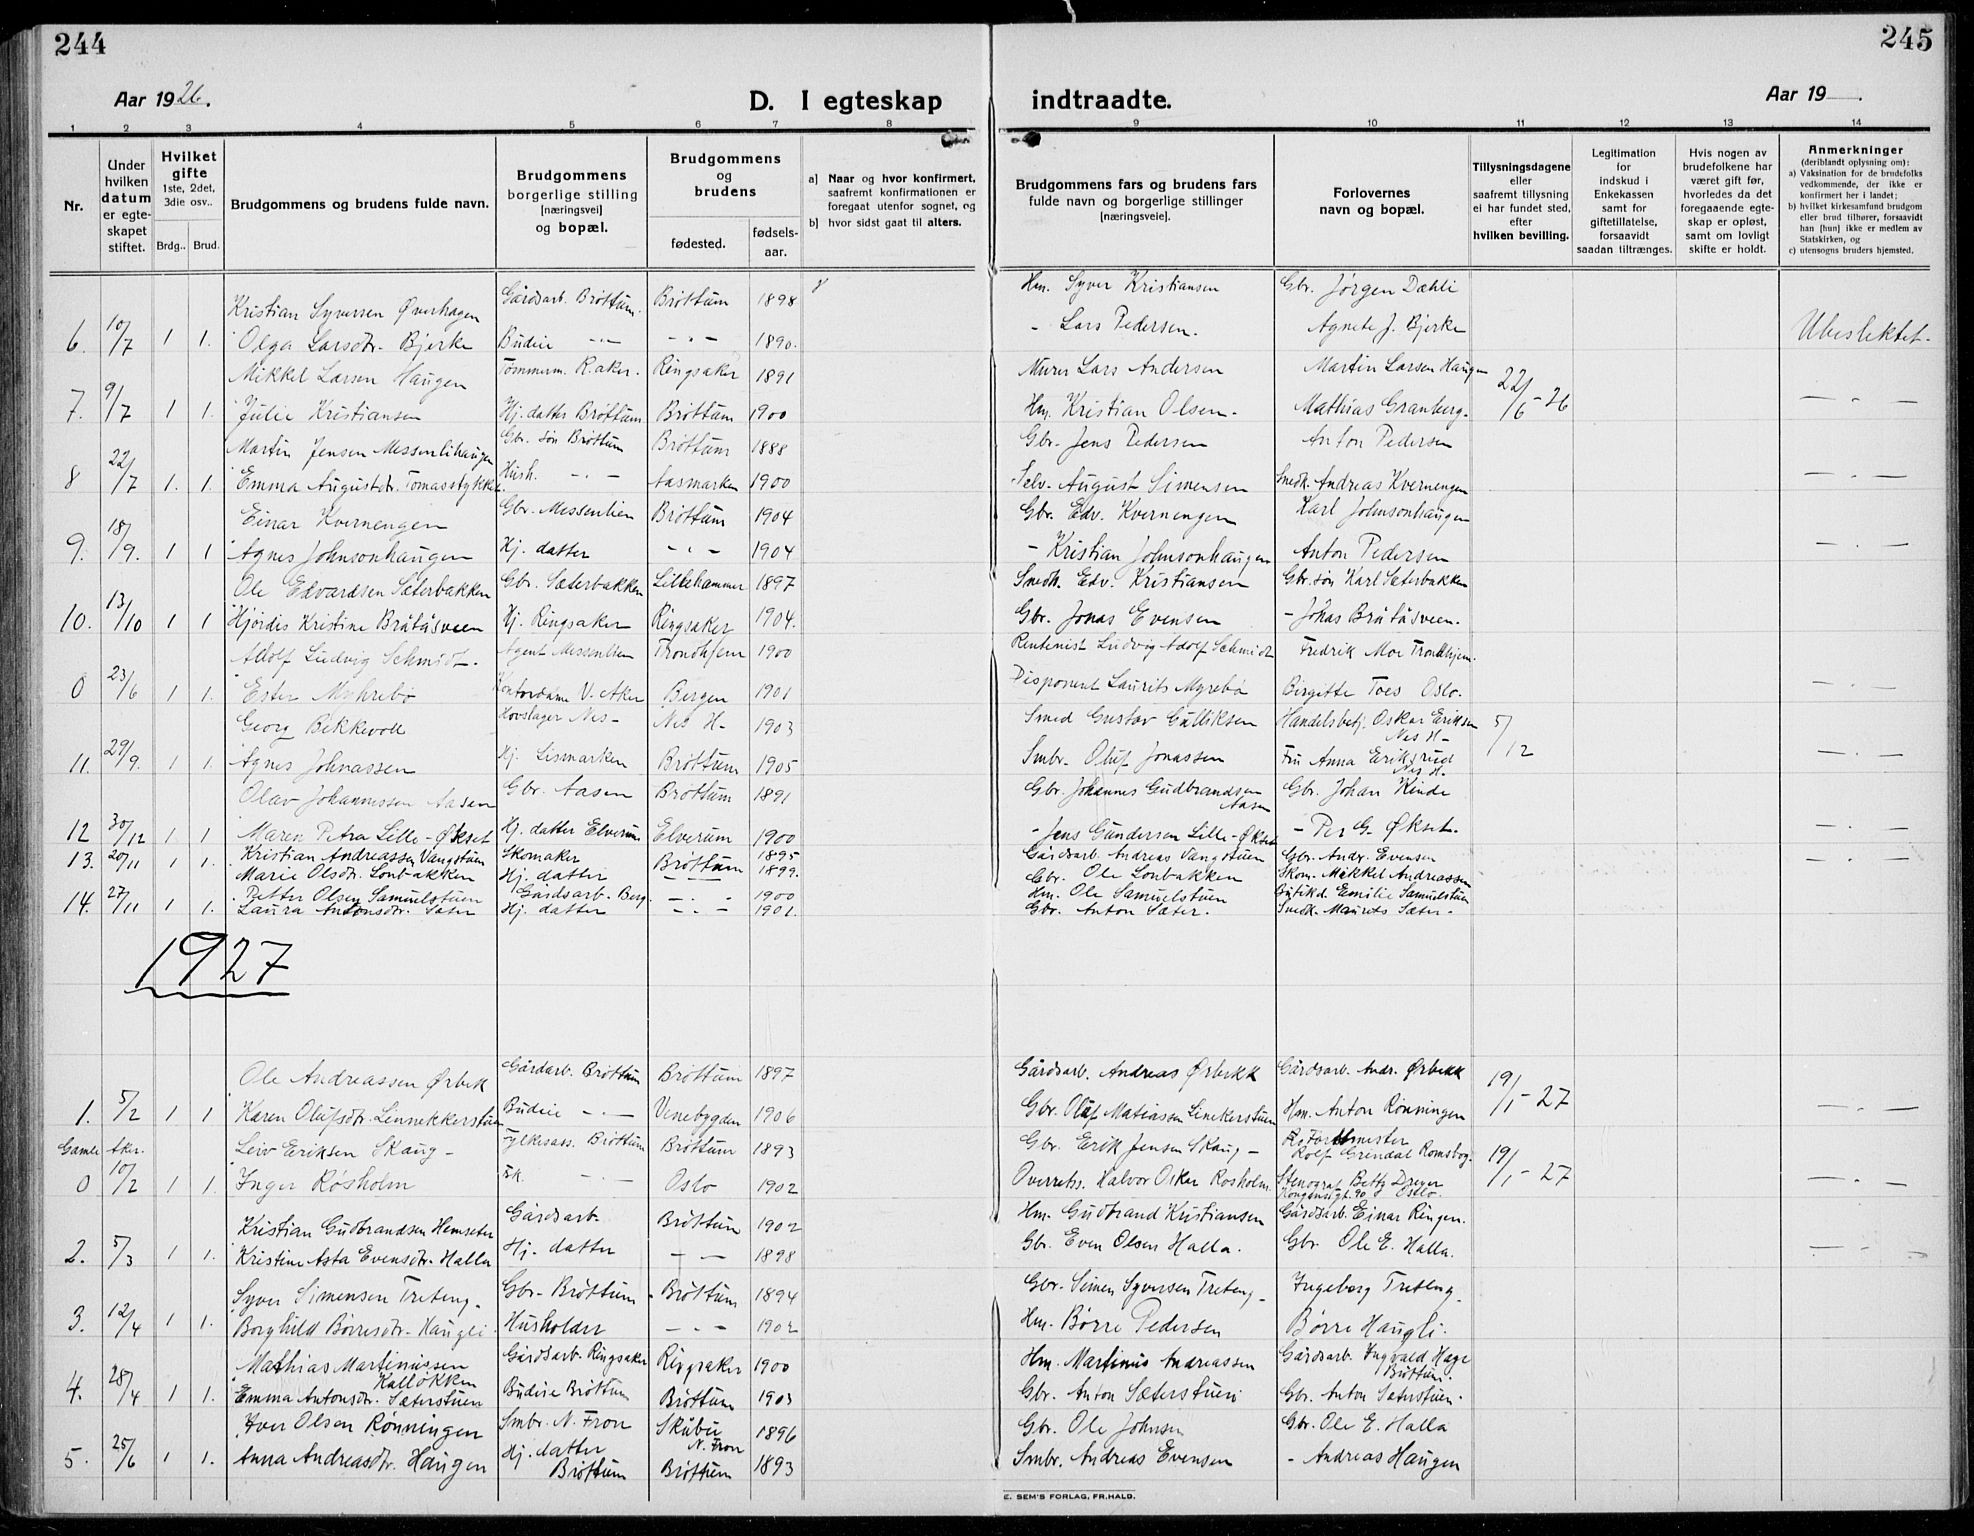 244
Aar 1926.
D. I egteskap
1 2 3 4 5 6 7 8
Nr.
Under hvilken datum er egte-skapet stiftet.
Hvilket gifte 1ste, 2det, 3die osv..
Brdg.. Brud.
Brudgommens og brudens fulde navn.
Brudgommens borgerlige stilling [næringsvei] og bopæl.
Brudgommens og brudens
fødested. fødsels-aar.
a) Naar og hvor konfirmert, saafremt konfirmationen er foregaat utenfor sognet, og
b) hvor sidst gaat til alters.
Kristian Syversen Øverhagen Gårdsarb. Brøttum. Brøttum 1898
6. 10/7 1 1. Olga Larsdtr. Bjerke Budeie -"- -"- 1890.
Mikkel Larsen Haugen Tømmerm. R.aker. Ringsaker 1891
7. 9/7 1 1. Julie Kristiansen Hj. datter Brøttum Brøttum 1900
Martin Jensen Messenlihaugen Gbr. søn Brøttum Brøttum 1888
8 22/7 1. 1. Emma Augustdtr. Tomasstykket Hush. -"- Aasmarken 1900
Einar Kvernengen Gbr. Messenlien Brøttum 1904
9. 18/9. 1 1 Agnes Johnsonhaugen Hj. datter -"- 1904
Ole Edvardsen Sæterbakken Gbr. Sæterbakken Lillehammer 1897
10. 13/10 1 1 Hjørdis Kristine Bråtåsveen Hj. Ringsaker Ringsaker 1904.
Adolf Ludvig Schmidt. Agent Messenlien Trondhjem 1900
0 23/6 1 1. Ester Myhrebø Kontordame V. Aker Bergen 1901
Georg Bekkevold Hovslager Nes - Nes H- 1903
11. 29/9. 1 1 Agnes Johnassen Hj. Lismarken Brøttum 1905
Olav Johannessen Aasen Gbr. Aasen Brøttum 1891
12 30/12 1 1 Maren Petra Lille-Økset Hj. datter Elverum Elverum 1900
13. 20/11 1 1. Kristian Andreassen Vangstuen Skomaker Brøttum 1895
Marie Olsdtr. Lonbakken Hj. datter -"- 1899.
14. 27/11 1 1. Petter Olsen Samuelstuen Gårdsarb. Berg. -"- 1900
Laura Antonsdtr. Sæter Hj. datter -"- 1901.
1927
Ole Andreassen Ørbek Gårdarb. Brøttum Brøttum 1897
1. 5/2 1 1 Karen Olufsdtr. Linnekkerstuen Budeie -"- Venebygden 1906
Gamle Aker. Leiv Eriksen Skaug - Fylkesass. Brøttum Brøttum 1893
0 10/2 1 1. Inger Røsholm -"- Oslo 1902
Kristian Gudbrandsen Hemseter Gårdsarb. Brøttum 1902
2. 5/3 1 1. Kristine Asta Evensdtr. Halla Hj. datter -"- 1898
Syver Simensen Treteng. Gbr. Brøttum Brøttum 1894
3. 12/4 1 1. Borghild Børresdtr. Haugli Husholder -"- 1902
Mathias Martinussen Kalløkken Gårdsarb. Ringsaker Ringsaker 1900
4. 28/4 1 1. Emma Antonsdtr. Sæterstuen Budeie Brøttum Brøttum 1903
Iver Olsen Rønningen Smbr. N. Fron Skåbu N. Fron 1896
5. 25/6 1 1. Anna Andreasdtr. Haugen Hj. datter Brøttum Brøttum 1893
245
indtraadte.
Aar 19 .
9 10 11 12 13 14
Brudgommens fars og brudens fars fulde navn og borgerlige stillinger [næringsveie].
Forlovernes navn og bopæl.
Tillysningsdagene eller saafremt tillysning ei har fundet sted, efter hvilken bevilling.
Legitimation for indskud i Enkekassen samt for giftetillatelse, forsaavidt saadan tiltrænges.
Hvis nogen av brudefolkene har været gift før, hvorledes da det foregaaende egte-skap er opløst, samt om lovligt skifte er holdt.
Anmerkninger (deriblandt oplysning om):
a) Vaksination for de brudefolks vedkommende, der ikke er konfirmert her i landet;
b) hvilket kirkesamfund brudgom eller brud tilhører, forsaavidt han [hun] ikke er medlem av Statskirken, og
c) utensogns bruders hjemsted.
Hm. Syver Kristiansen Gbr. Jørgen Dæhli
- Lars Pedersen. Agnete J. Bjerke Ubeslektet.
Murer Lars Andersen Martin Larsen Haugen
Hm. Kristian Olsen. Mathias Granberg. 22/6-26 -"-
Gbr. Jens Pedersen Anton Pedersen
Selv. August Simensen Smedk. Andreas Kvernengen -"-
Gbr. Edv. Kvernengen Karl Johnsonhaugen
- Kristian Johnsonhaugen Anton Pedersen -"-
Smedk. Edv. Kristiansen Gbr. søn Karl Sæterbakken
Gbr. Jonas Evensen - Johas Bråtåsveen. -"-
Rentenist Ludvig Adolf Schmidt Fredrik Moe Trondhjem.
Disponent Laurits Myrebø Birgitte Toes Oslo. -"-
Smed Gustav Gulliksen Handelsbetj. Oskar Eriksen Nes H- 5/12
Smbr. Oluf Jonassen Fru Anna Eriksrud Nes H. -"-
Gbr. Johannes Gudbrandsen Aasen Gbr. Johan Kinde
- Jens Gundersen Lille-Økset - Per G. Økset. -"-
Gårdsarb. Andreas Vangstuen Gbr. Andr. Evensen -"-
Gbr. Ole Lonbakken Skom. Mikkel Andreassen
Hm. Ole Samuelstuen Butikd. Emilie Samuelstuen
Gbr. Anton Sæter. Smedk. Maurits Sæter.
Gårdsarb. Andreas Ørbekk Gårdsarb. Andr. Ørbekk
Gbr. Oluf Matiassen Linekerstuen Hm. Anton Rønningen 19/1-27 -"-
Gbr. Erik Jensen Skaug - Forstmester Rolf Grindal Romsbog.
Overrets. Halvor Osker Rosholm Stenograf Betty Dreyer Kongensgt. 90 Oslo. 19/1-27 -"-
Hm. Gudbrand Kristiansen Gårdsarb. Einar Ringen.
Gbr. Even Olsen Halla. Gbr. Ole E. Halla. -"-
Gbr. Simen Syversen Treteng - Ingeborg Treteng.
Hm. Børre Pedersen Børre Haugli.
Hm. Martinus Andreassen Gårdsarb. Ingvald Hage Brøttum.
Gbr. Anton Sæterstuen Gbr. Anton Sæterstuen.
Gbr. Ole Johnsen Gbr. Ole E. Halla
Smbr. Andreas Evensen - Andreas Haugen
E. SEM'S FORLAG, FR.HALD.